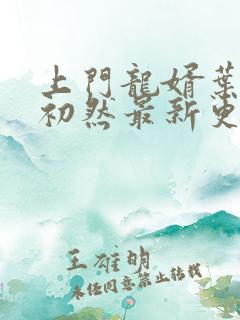 上門龍婿葉
初然最新更
王雄明
未任同意禁止轉載